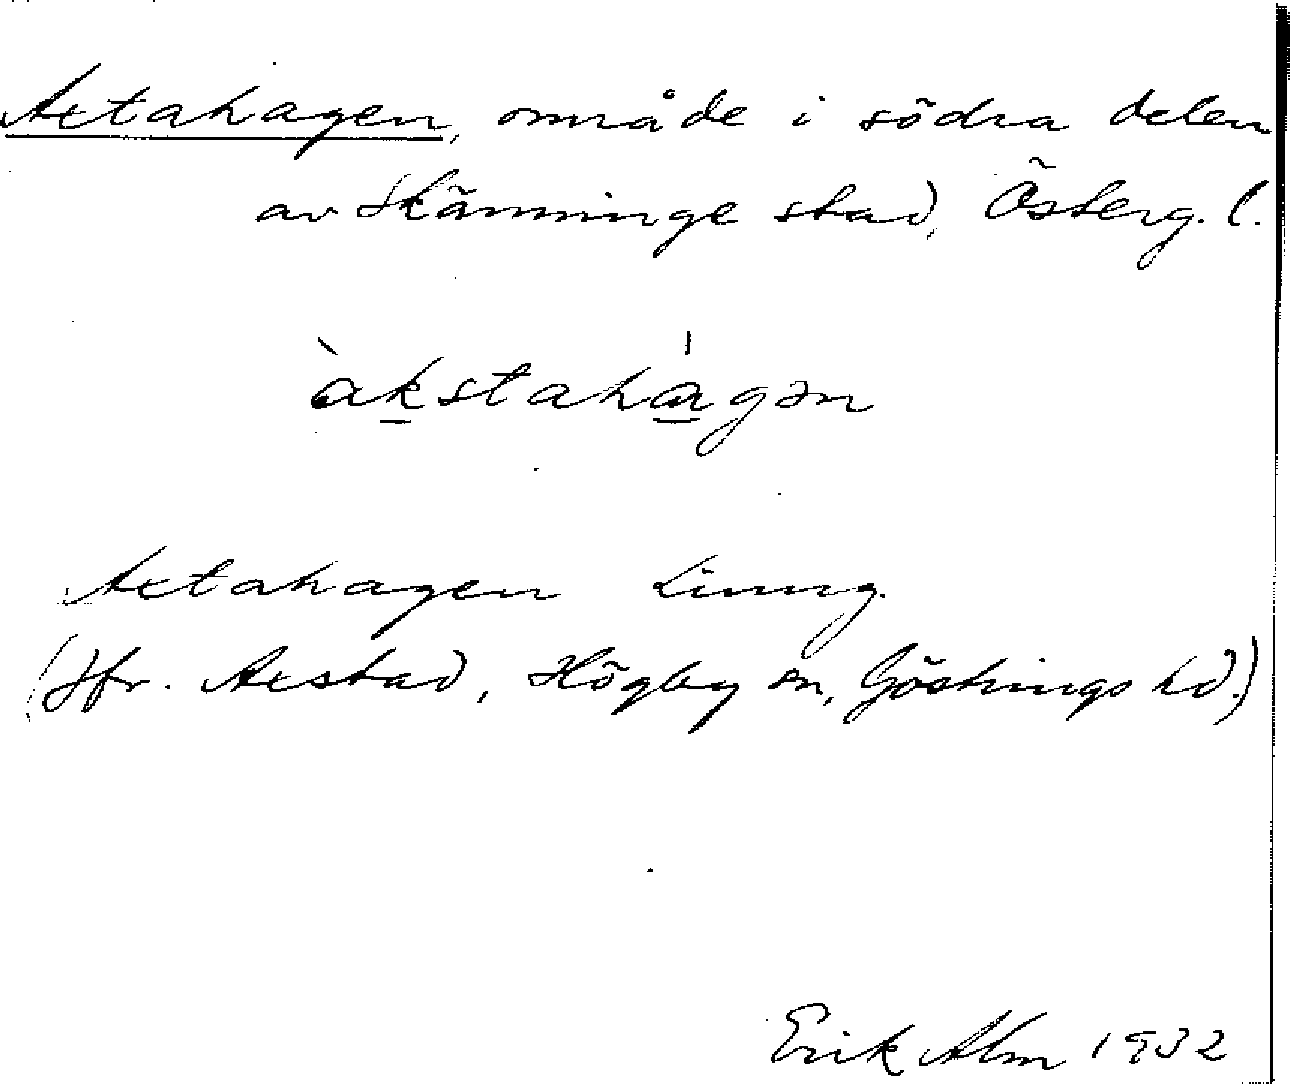 Axtahagen, område i södra delen
av Skänninge stad, Österg. l.
àkstahágən
Axtahagen Linng.
(Jfr. Axstad, Högby sn, Göstrings hd.)
Erik Alm 1932